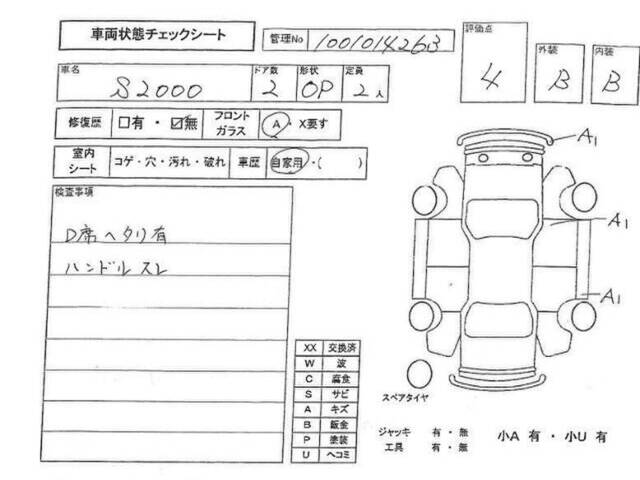 車両状態チェックシート
管理No 1001014263
評価点 4
外装 B
内装 B
車名 S2000
ドア数 2
形状 OP
定員 2人
修復歴 □有・☑無
フロントガラス A・X要す
室内シート コゲ・穴・汚れ・破れ
車歴 自家用・( )
検査事項
D席ヘタリ有
ハンドルスレ
A1
A1
A1
XX 交換済
W 波
C 腐食
S サビ
A キズ
B 鈑金
P 塗装
U ヘコミ
スペアタイヤ
ジャッキ 有・無
工具 有・無
小A 有・小U 有